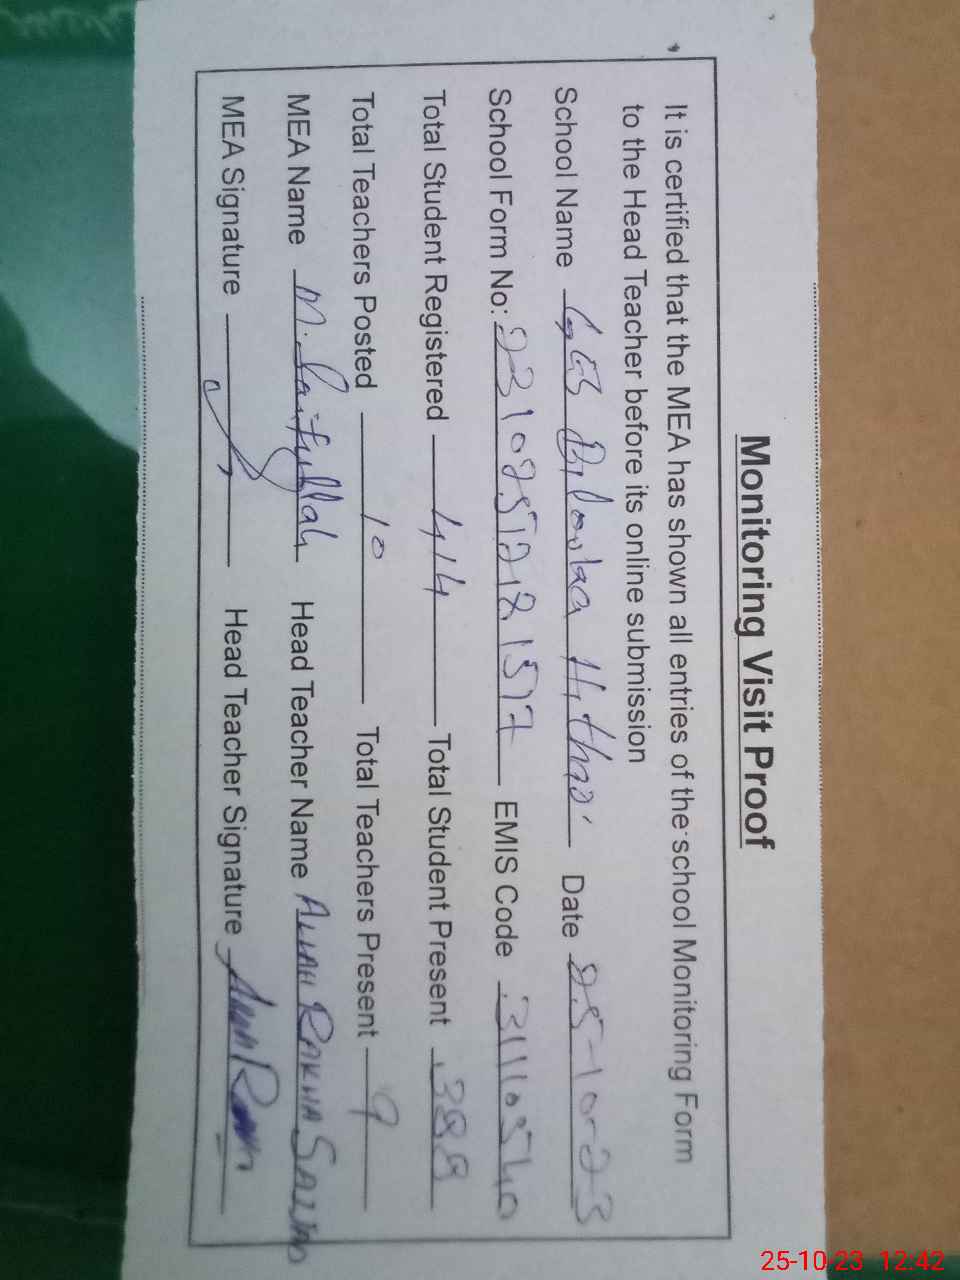 Monitoring Visit Proof
It is certified that the MEA has shown all entries of the school Monitoring Form
to the Head Teacher before its online submission
School Name Date 25-10-23
School Form No: EMIS Code 31110540
Total Student Registered 414 Total Student Present 388
Total Teachers Posted 10 Total Teachers Present 9
MEA Name M. Saifullah Head Teacher Name ALLAH RAKHA SAJJAD
MEA Signature Head Teacher Signature
25-10-23 12:42